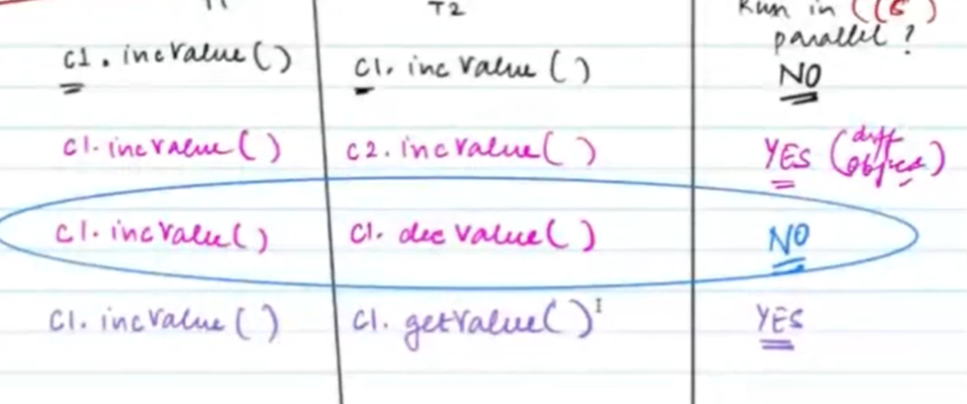 T2 Run in
parallel ?
C1. incValue() C1. incValue() NO
C1. incValue() C2. incValue() YES (diff object)
C1. incValue() C1. decValue() NO
C1. incValue() C1. getValue() YES